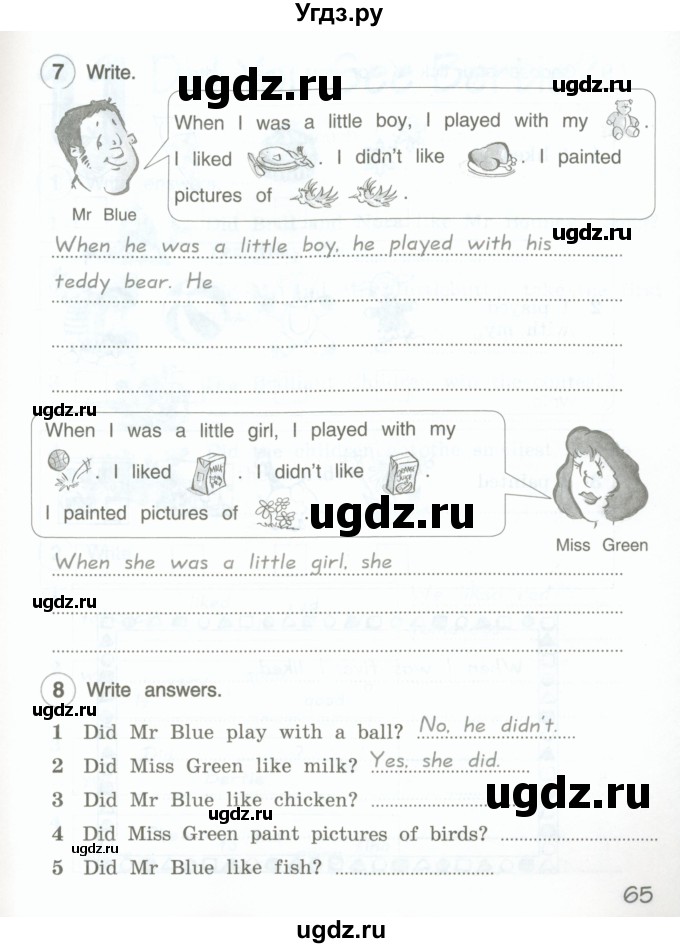 Угдз.ру
7 Write.
When I was a little boy, I played with my .
I liked . I didn't like . I painted
pictures of .
Mr Blue
When he was a little boy, he played with his
teddy bear. He
When I was a little girl, I played with my
. I liked . I didn't like .
I painted pictures of .
Miss Green
When she was a little girl, she
8 Write answers.
1 Did Mr Blue play with a ball? No, he didn't.
2 Did Miss Green like milk? Yes, she did.
3 Did Mr Blue like chicken?
4 Did Miss Green paint pictures of birds?
5 Did Mr Blue like fish?
65
ugdz.ru
ugdz.ru
ugdz.ru
ugdz.ru
ugdz.ru
ugdz.ru
ugdz.ru
ugdz.ru
ugdz.ru
ugdz.ru
ugdz.ru